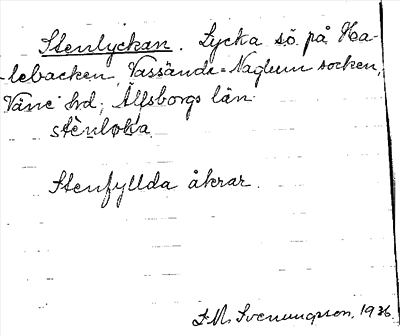 Stenlyckan. Lycka sö. på Ha-
lebacken, Vassända-Naglum socken,
Väne hd; Älfsborgs län
stènløka
Stenfyllda åkrar.
S. M. Svenungsson, 1936.